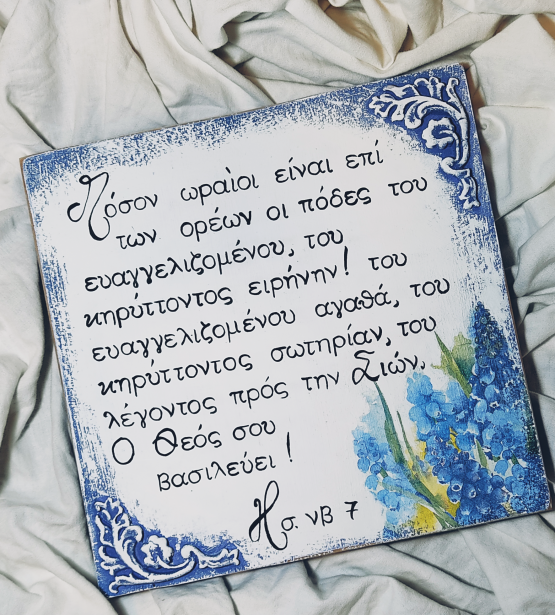 Πόσον ωραίοι είναι επί
των ορέων οι πόδες του
ευαγγελιζομένου, του
κηρύττοντος ειρήνην! του
ευαγγελιζομένου αγαθά, του
κηρύττοντος σωτηρίαν, του
λέγοντος πρός την Σιών,
Ο Θεός σου
βασιλεύει!
Ησ. νβ 7